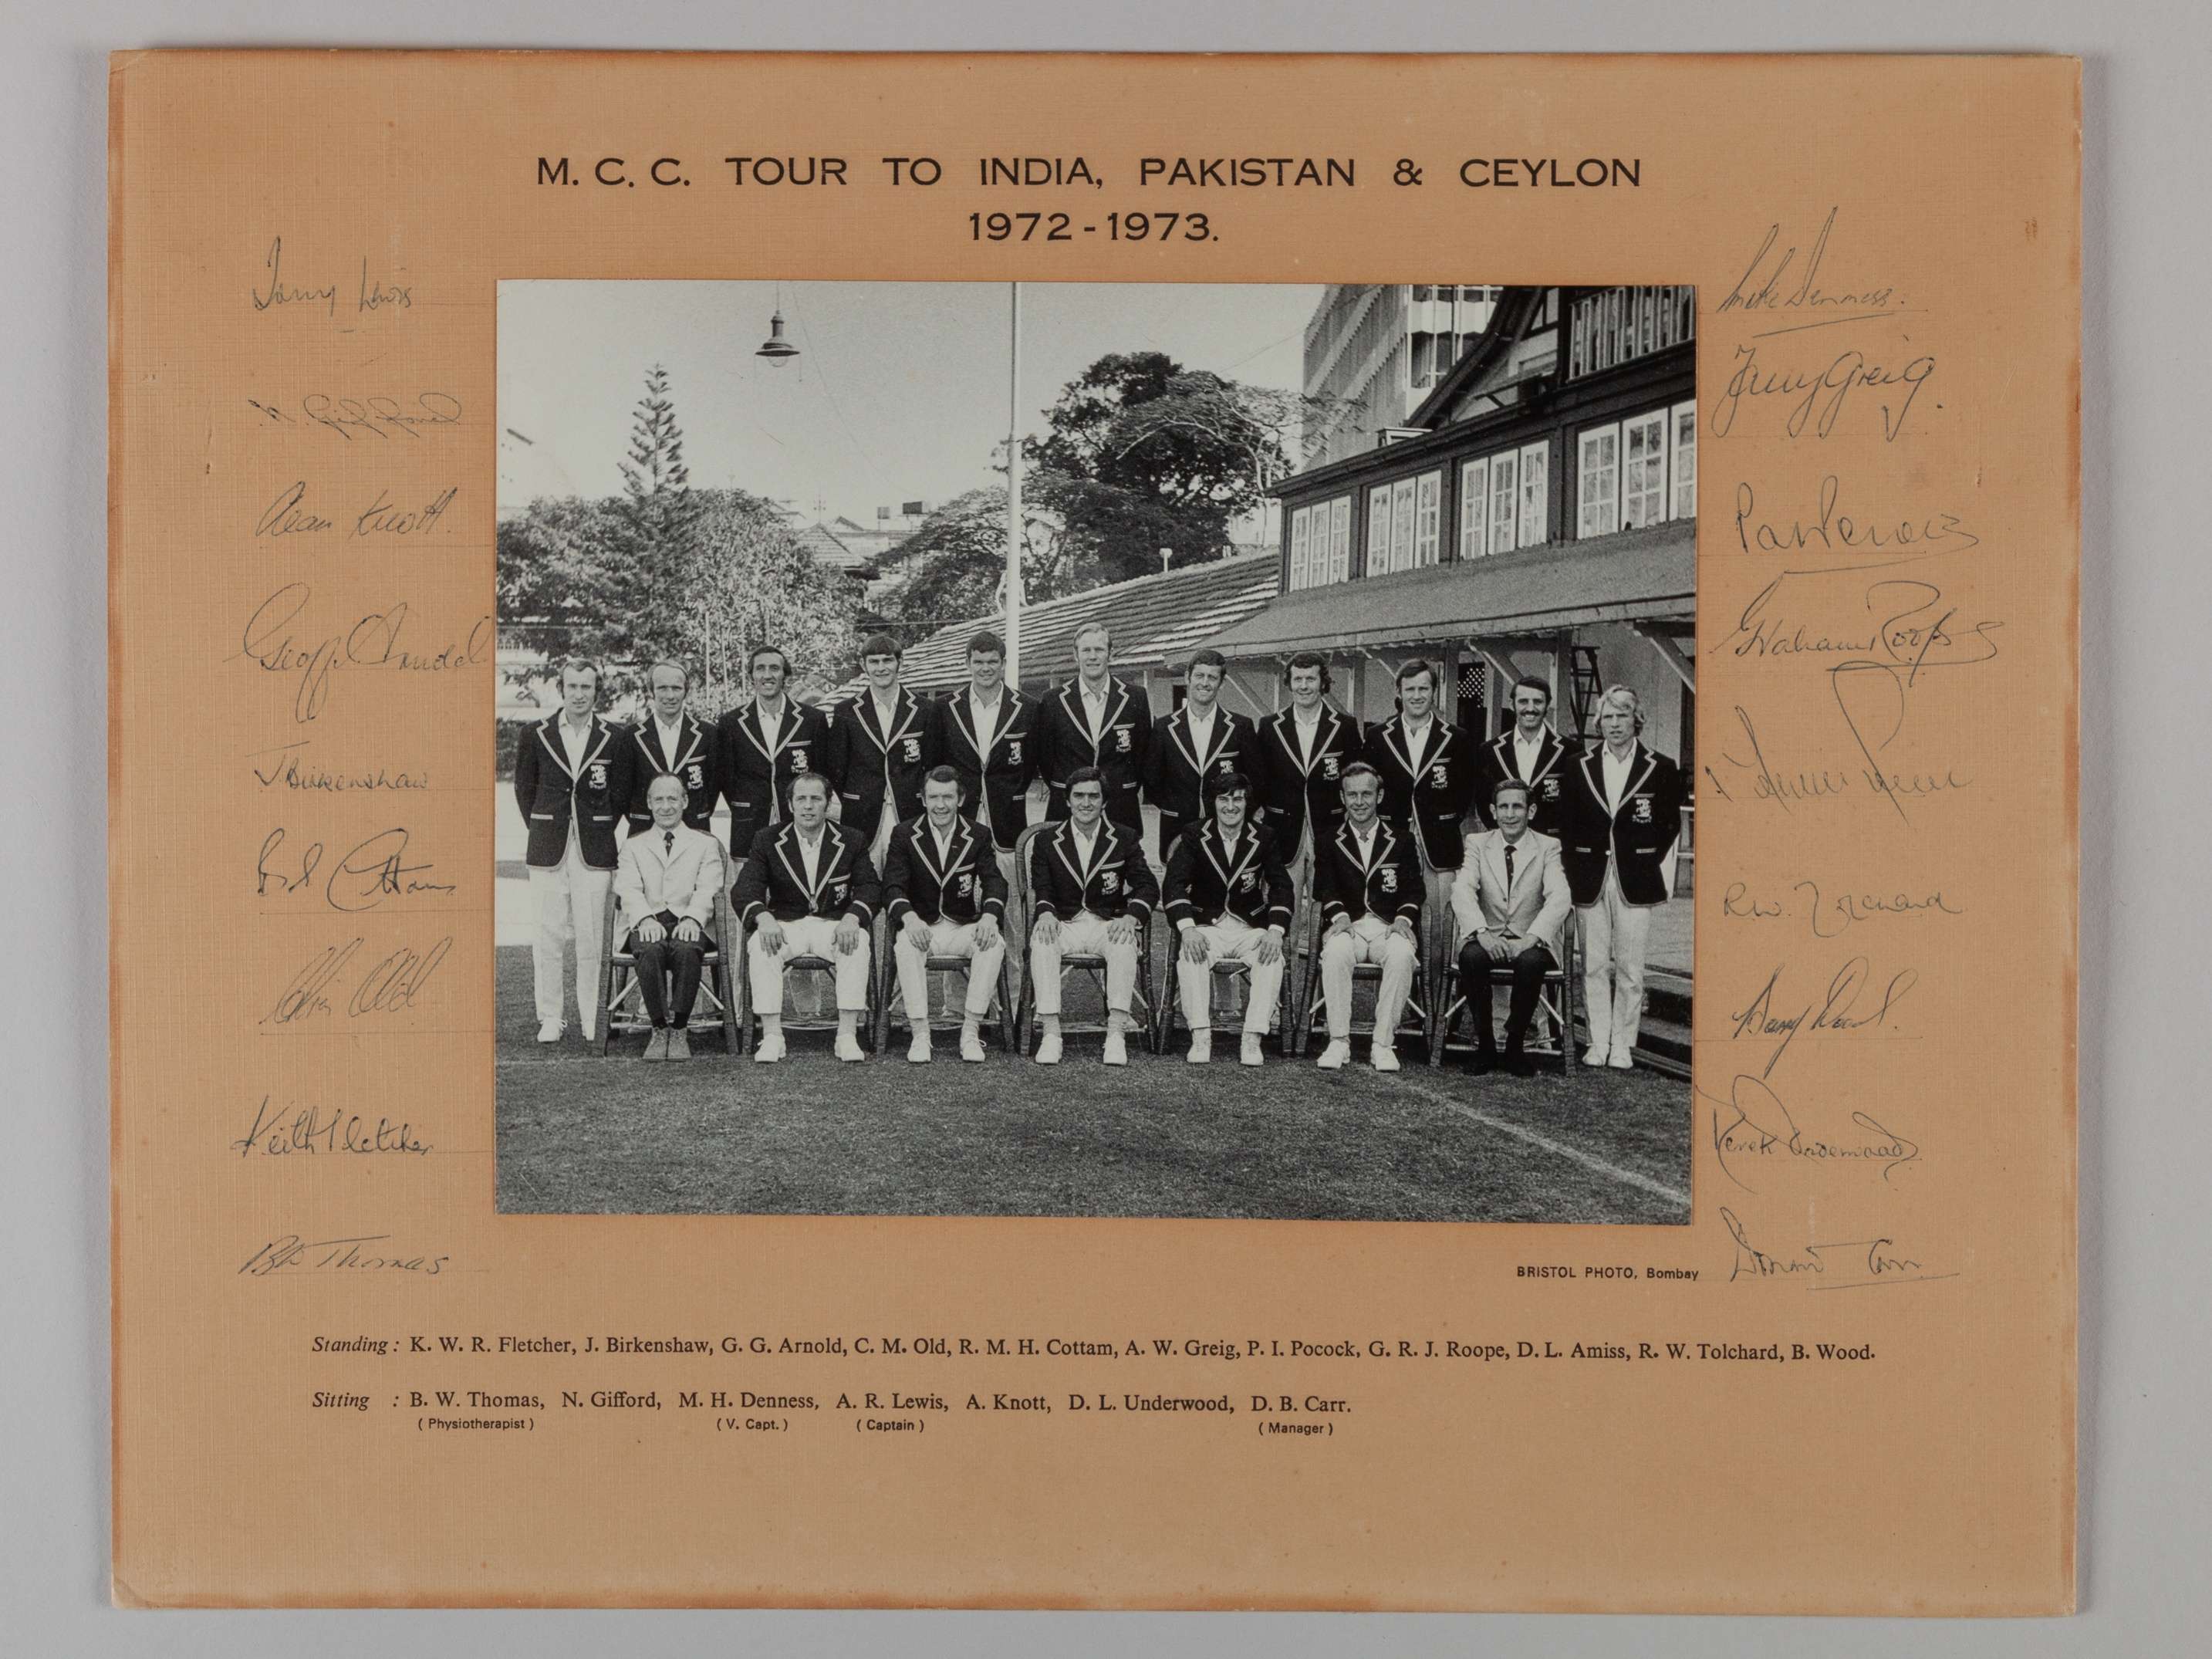 M. C. C. TOUR TO INDIA, PAKISTAN & CEYLON
1972-1973.
Tony Lewis
N. Gifford
Alan Knott.
Geoff Arnold
J Birkenshaw
Bob Cottam
Chris Old
Keith Fletcher
Thomas
Mike Denness.
Tony Greig.
Pat Pocock
Graham Roope
Dennis Amiss
R.W. Tolchard
Barry Wood.
Derek Underwood
Donald Carr
BRISTOL PHOTO, Bombay
Standing : K. W. R. Fletcher, J. Birkenshaw, G. G. Arnold, C. M. Old, R. M. H. Cottam, A. W. Greig, P. I. Pocock, G. R. J. Roope, D. L. Amiss, R. W. Tolchard, B. Wood.
Sitting : B. W. Thomas, N. Gifford, M. H. Denness, A. R. Lewis, A. Knott, D. L. Underwood, D. B. Carr.
( Physiotherapist ) ( V. Capt. ) ( Captain ) ( Manager )